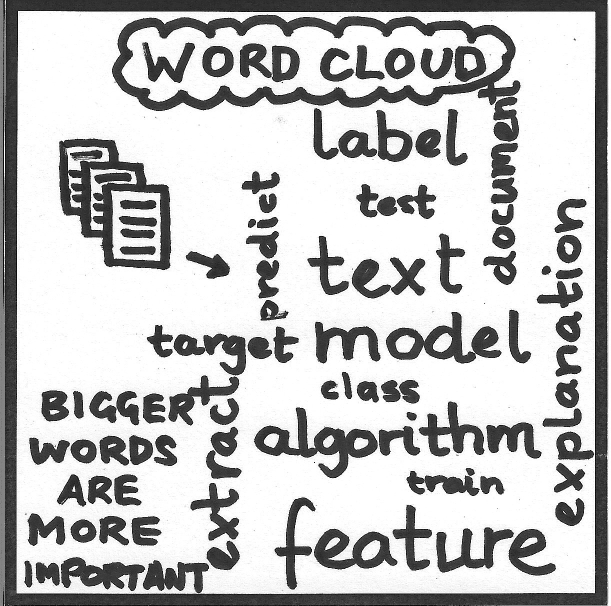 WORD CLOUD
label
document
test
predict
text
explanation
target
model
class
extract
algorithm
train
feature
BIGGER
WORDS
ARE
MORE
IMPORTANT